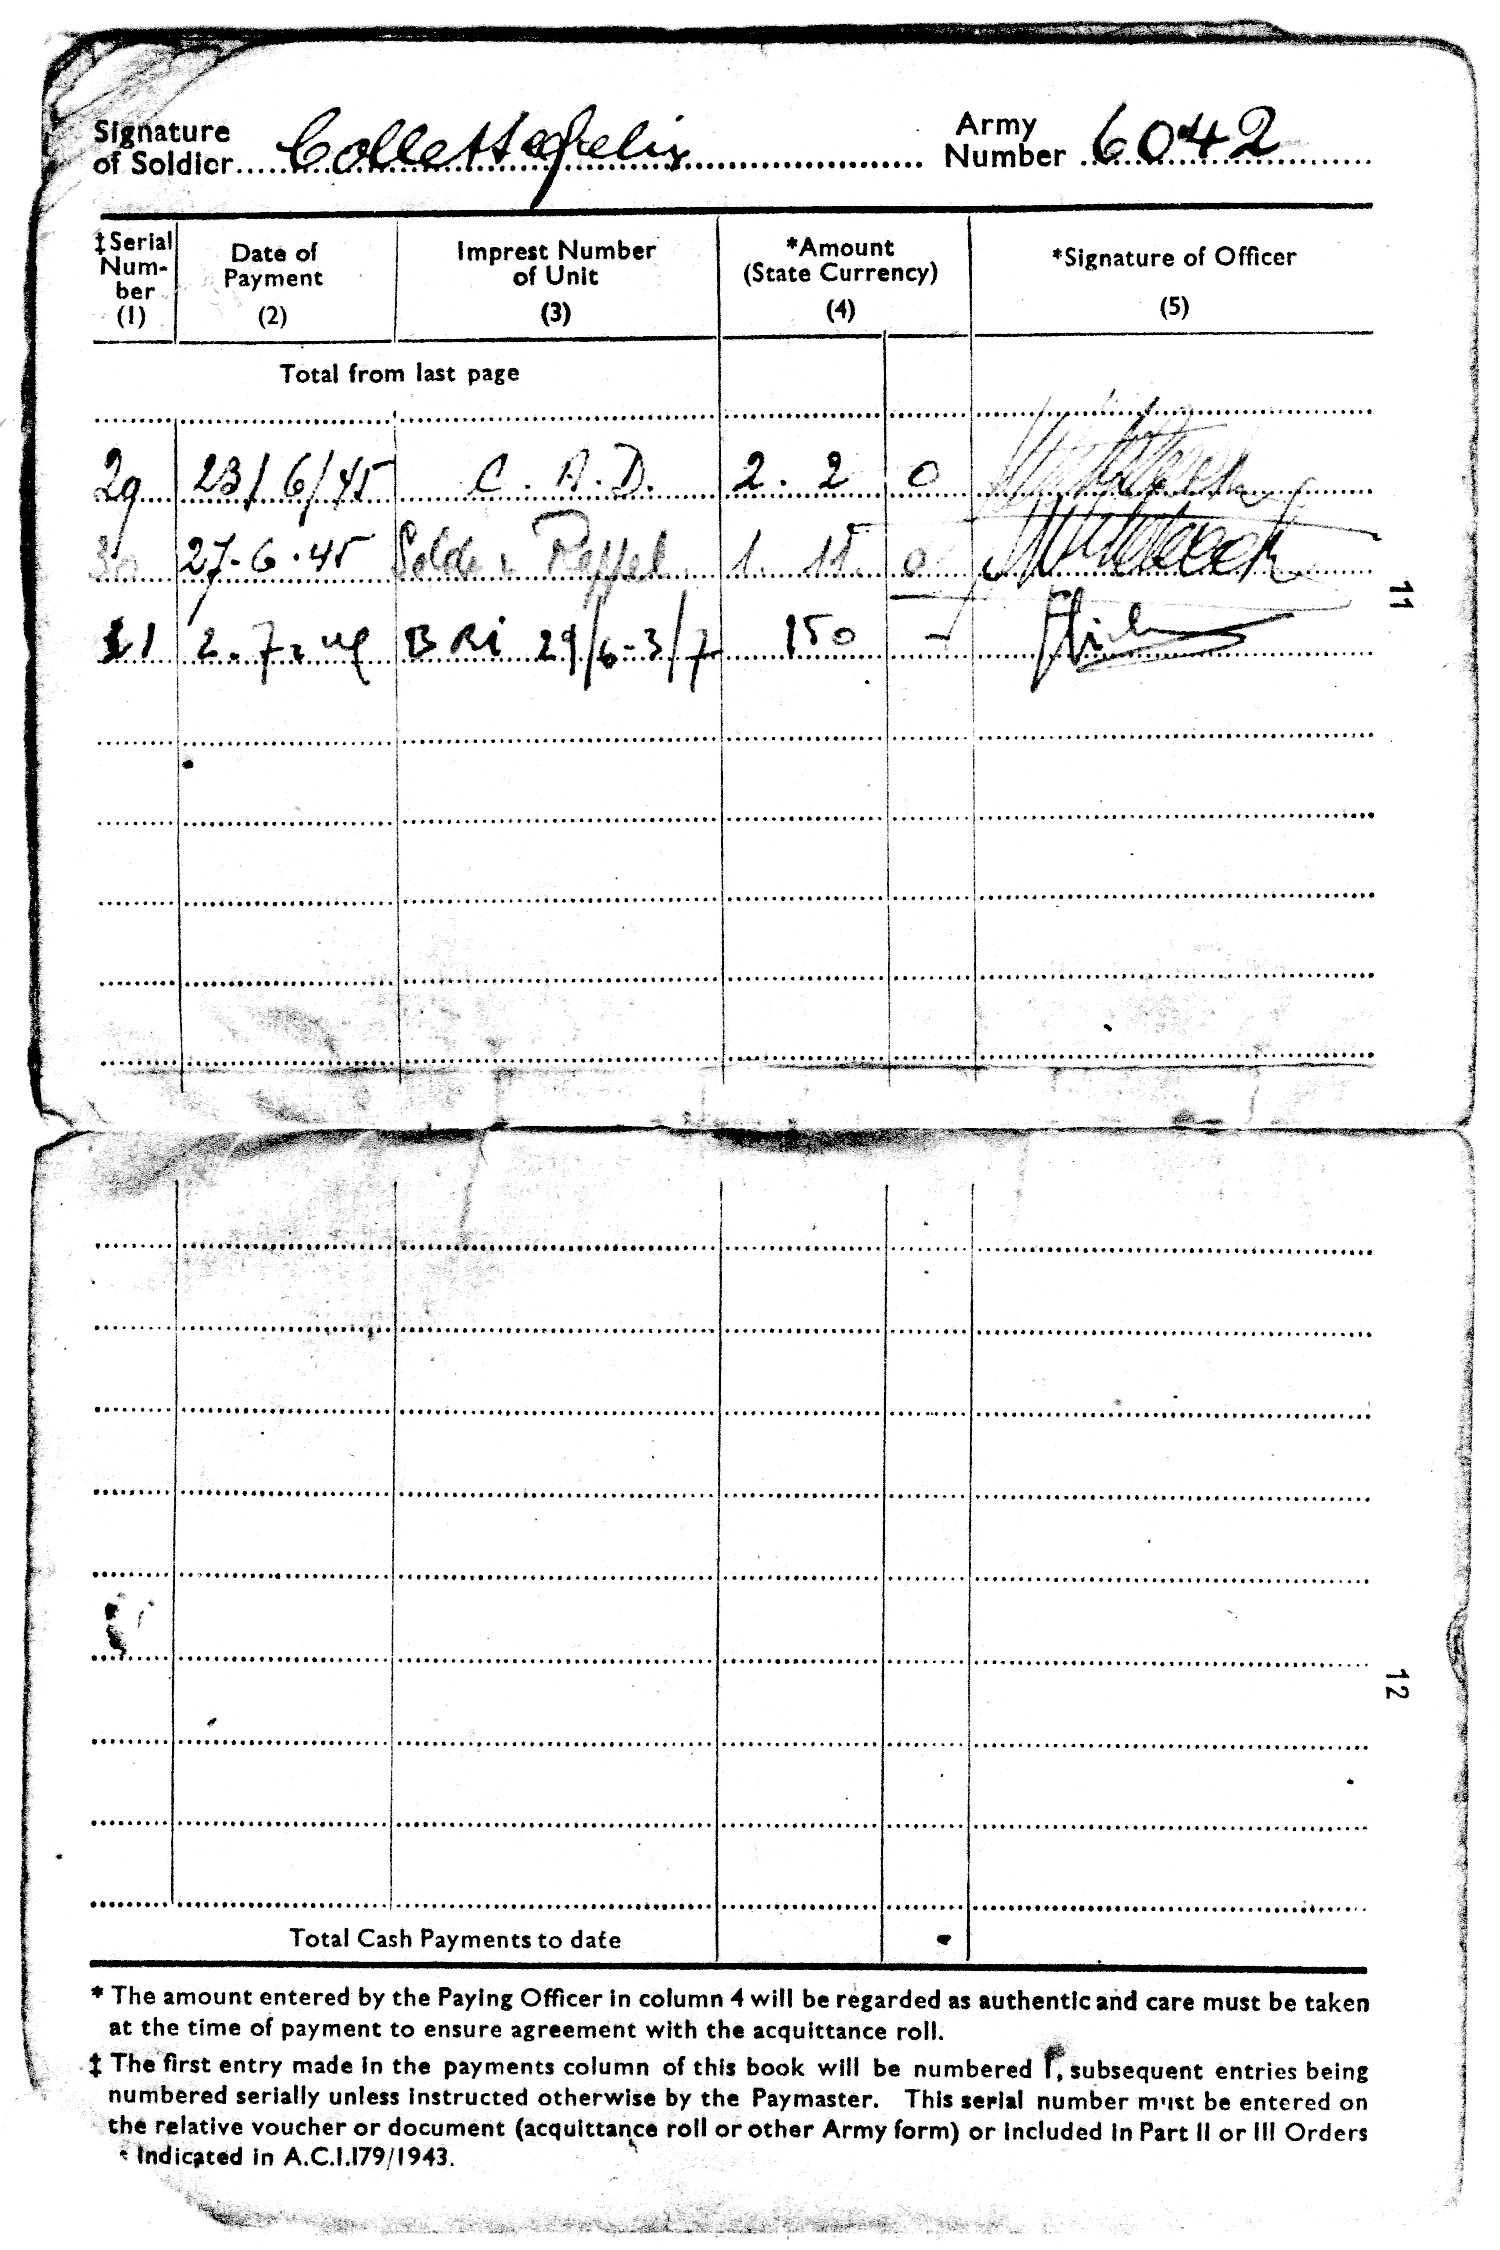 Signature of Soldier Collette Felix Army Number 6042
‡Serial Num-ber (1) Date of Payment (2) Imprest Number of Unit (3) *Amount (State Currency) (4) *Signature of Officer (5)
Total from last page
29 23/6/45 C.A.D. 2. 2 0
30 27-6.45 Solde 1. 15. 0
31 2.7. B Ri 29/6-3/7 150 -
11
12
Total Cash Payments to date
* The amount entered by the Paying Officer in column 4 will be regarded as authentic and care must be taken
at the time of payment to ensure agreement with the acquittance roll.
‡ The first entry made in the payments column of this book will be numbered 1, subsequent entries being
numbered serially unless instructed otherwise by the Paymaster. This serial number must be entered on
the relative voucher or document (acquittance roll or other Army form) or included in Part II or III Orders
indicated in A.C.I.179/1943.